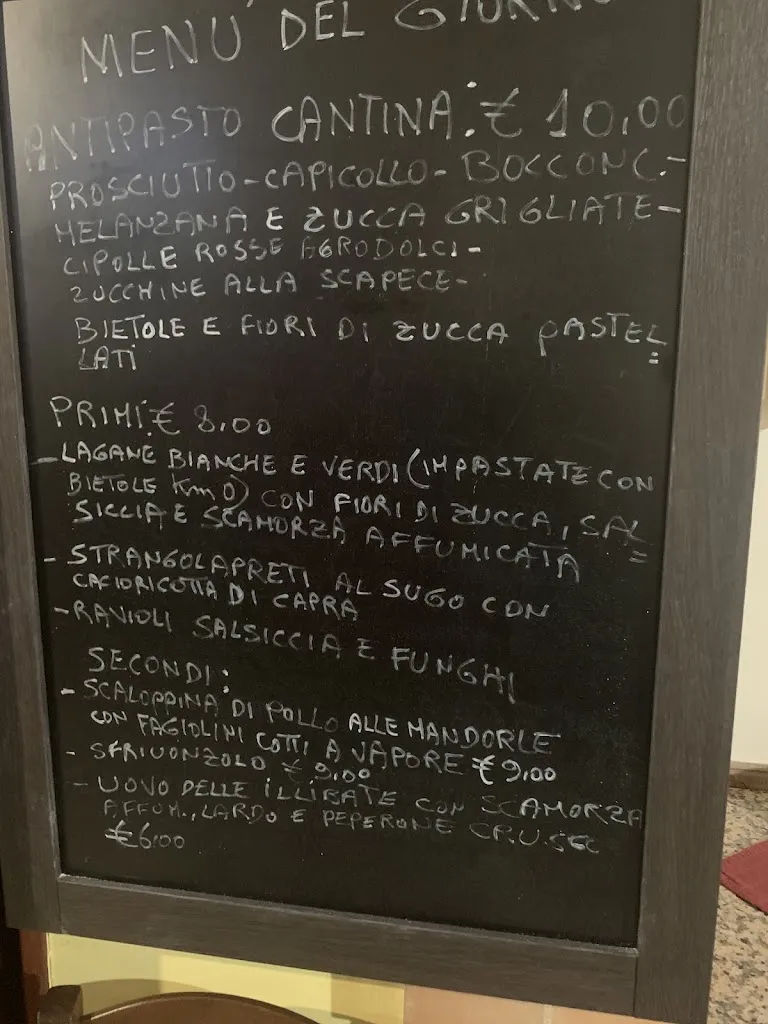 MENU' DEL GIORNO
ANTIPASTO CANTINA: € 10,00
PROSCIUTTO - CAPICOLLO - BOCCONC. -
MELANZANA E ZUCCA GRIGLIATE -
CIPOLLE ROSSE AGRODOLCI -
ZUCCHINE ALLA SCAPECE -
BIETOLE E FIORI DI ZUCCA PASTEL=
LATI
PRIMI: € 8,00
- LAGANE BIANCHE E VERDI (IMPASTATE CON
BIETOLE Km 0) CON FIORI DI ZUCCA, SAL=
SICCIA E SCAMORZA AFFUMICATA
- STRANGOLAPRETI AL SUGO CON
CACIORICOTTA DI CAPRA
- RAVIOLI SALSICCIA E FUNGHI
SECONDI:
- SCALOPPINA DI POLLO ALLE MANDORLE
CON FAGIOLINI COTTI A VAPORE € 9,00
- SFRIUONZOLO € 9,00
- UOVO DELLE ILLIBATE CON SCAMORZA
AFFUM., LARDO E PEPERONE CRUSCO
€ 6,00